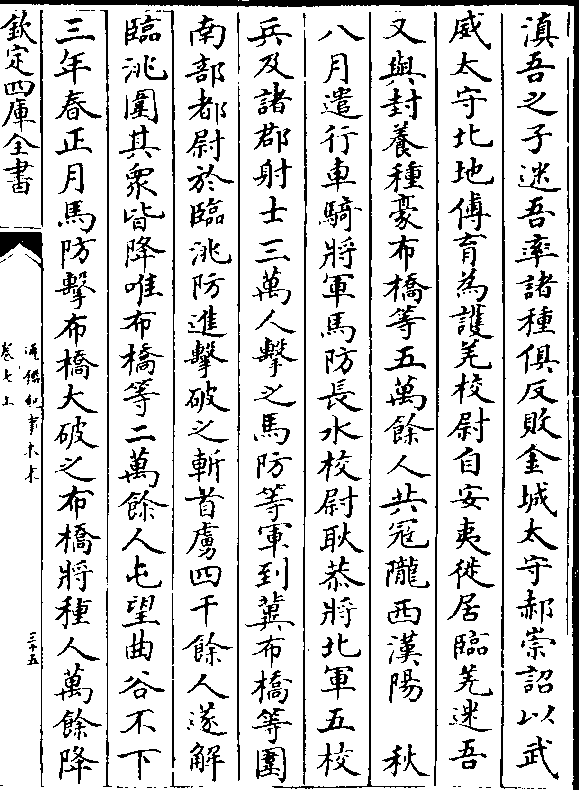 滇吾之子迷吾率諸種俱反敗金城太守郝崇詔以武
威太守北地傅育為護羌校尉自安夷徙居臨羌迷吾
又與封養種豪布橋等五萬餘人共冦隴西漢陽　秋
八月遣行車騎將軍馬防長水校尉耿恭將北軍五校
兵及諸郡射士三萬人擊之馬防等軍到冀布橋等圍
南部都尉於臨洮防進擊破之斬首虜四千餘人遂解
臨洮圍其衆皆降唯布橋等二萬餘人屯望曲谷不下
三年春正月馬防擊布橋大破之布橋將種人萬餘降
欽定四庫全書
通鑑紀事本末
卷七上
三十五